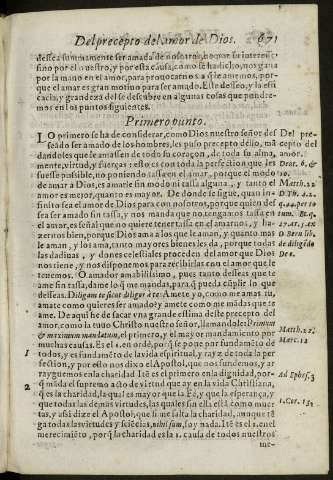 Del precepto del amor de Dios. 671
dessea summamente ser amada de nosotros, no por su interesse,
sino por el nuestro, y por esta causa, como se ha dicho, nos gana
por la mano en el amor, para prouocarnos a q̃ le amemos, por-
que el amar es gran motiuo para ser amado. Este desseo, y la efi
cacia, y grandeza del se descubre en algunas cosas que pondre-
mos en los puntos siguientes.
Primero punto.
LO primero se ha de considerar, como Dios nuestro señor des
seado ser amado de los hombres, les puso precepto dello, mã
dandoles que le amassen de todo su coraçon, de toda su alma,
mente, virtud, y fuerças: esto es con toda la perfeccion que les
fuesse possible, no poniendo tassa en el amar, porque el modo
de amar a Dios, es amarle sin modo ni tassa alguna, y tanto el
amor es mejor, quanto es mayor. De donde se sigue, quan in-
finito sea el amor de Dios para con nosotros, porque quien des
sea ser amado sin tassa, y nos manda que no tengamos tassa en
el amar, es señal que no quiere tener tassa en amarnos, y ha-
zernos bien, porque Dios ama a los que le aman, y quanto mas le
aman, y los ama, tanto mayores bienes les da, porque todas
las dadiuas, y dones celestiales proceden del amor que Dios
nos tiene, y nos disponemos para recibirlas con el amor que le
tenemos. O amador amabilissimo, pues tanto desseas que te
ame sin tassa, dame lo q̃ me mandas, para q̃ pueda cũplir lo que
desseas. Diligam te sicut diligor à te: Amete yo, como me amas tu,
amate como quieres ser amado y amete como me mãdas que te
ame. De aqui he de sacar vna grande estima deste precepto del
amor, como la tuuo Christo nuestro señor, llamandole: Primum
& maximum mandatum, el primero, y el mayor mandamiento por
muchas causas. Es el 1. en orde, por q̃ se pone por fundamẽto de
todos, y es fundamẽto de la vida espiritual, y rayz de toda la per
feccion, y por esto nos dixo el Apostol, que nos fundemos, y ar
rayguemos en la charidad. Itẽ es el primero en la dignidad, por-
q̃ mãda el supremo acto de virtud que ay en la vida Christiana,
q̃ es la charidad, la qual es mayor que la Fè, y que la esperança, y
que todas las demas virtudes, las quales sin ella està como muer
tas, y assi dize el Apostol, que si me falta la charidad, aunque tẽ
ga todas las virtudes y sciẽcias, nihil sum, soy nada. Itẽ es el 1. en el
merecimiẽto, porq̃ la charidad es la 1. causa de todos nuestros
me-
Del pre-
cepto del
amor.
Deut. 6. &
10.
Matth. 22
D Th. 2. 2.
Matth. 22.
Marc. 12
1
Ad Ephes. 3
2
1. Cor. 13.